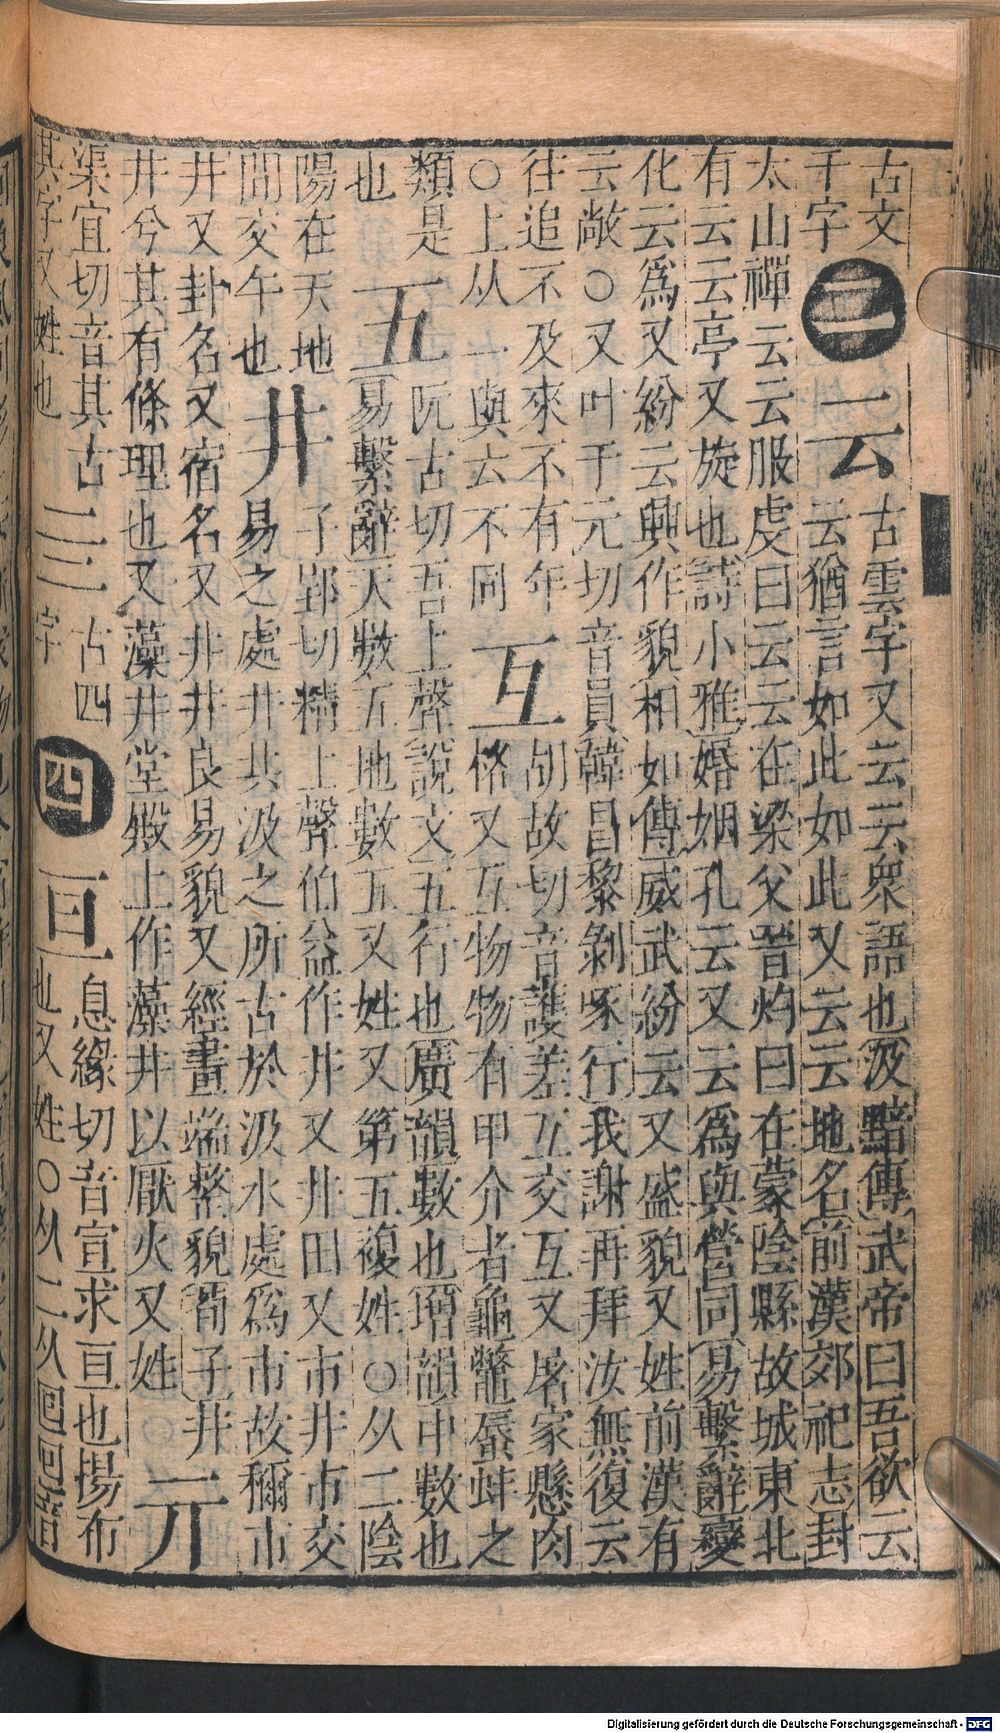 古文
千字
二
云
古雲字又云云衆語也汲黯傳武帝曰吾欲云
云猶言如此如此又云云地名前漢郊祀志封
太山禪云云服虔曰云云在梁父晉灼曰在蒙陰縣故城東北
有云云亭又旋也詩小雅婚姻孔云又云爲與營同易繫辭變
化云爲又紛云興作貌相如傳威武紛云又盛貌又姓前漢有
云敞○又叶于元切音員韓昌黎剝啄行我謝再拜汝無復云
往追不及來不有年
○上从一與六不同
互
胡故切音護差互交互又屠家懸肉
格又互物物有甲介者龜鼈蜃蚌之
類是
也
五
阮古切吾上聲說文五行也廣韻數也增韻中數也
易繫辭天數五地數五又姓又第五複姓○从二陰
陽在天地
間交午也
井
子郢切精上聲伯益作井又井田又市井市交
易之處井共汲之所古於汲水處爲市故稱市
井又卦名又宿名又井井良易貌又經畫端整貌荀子井
井兮其有條理也又藻井堂殿上作藻井以厭火又姓
亓
渠宜切音其古
其字又姓也
亖
古四
字
四
亘
息緣切音宣求亘也揚布
也又姓○从二从囘囘音
Digitalisierung gefördert durch die Deutsche Forschungsgemeinschaft - DFG